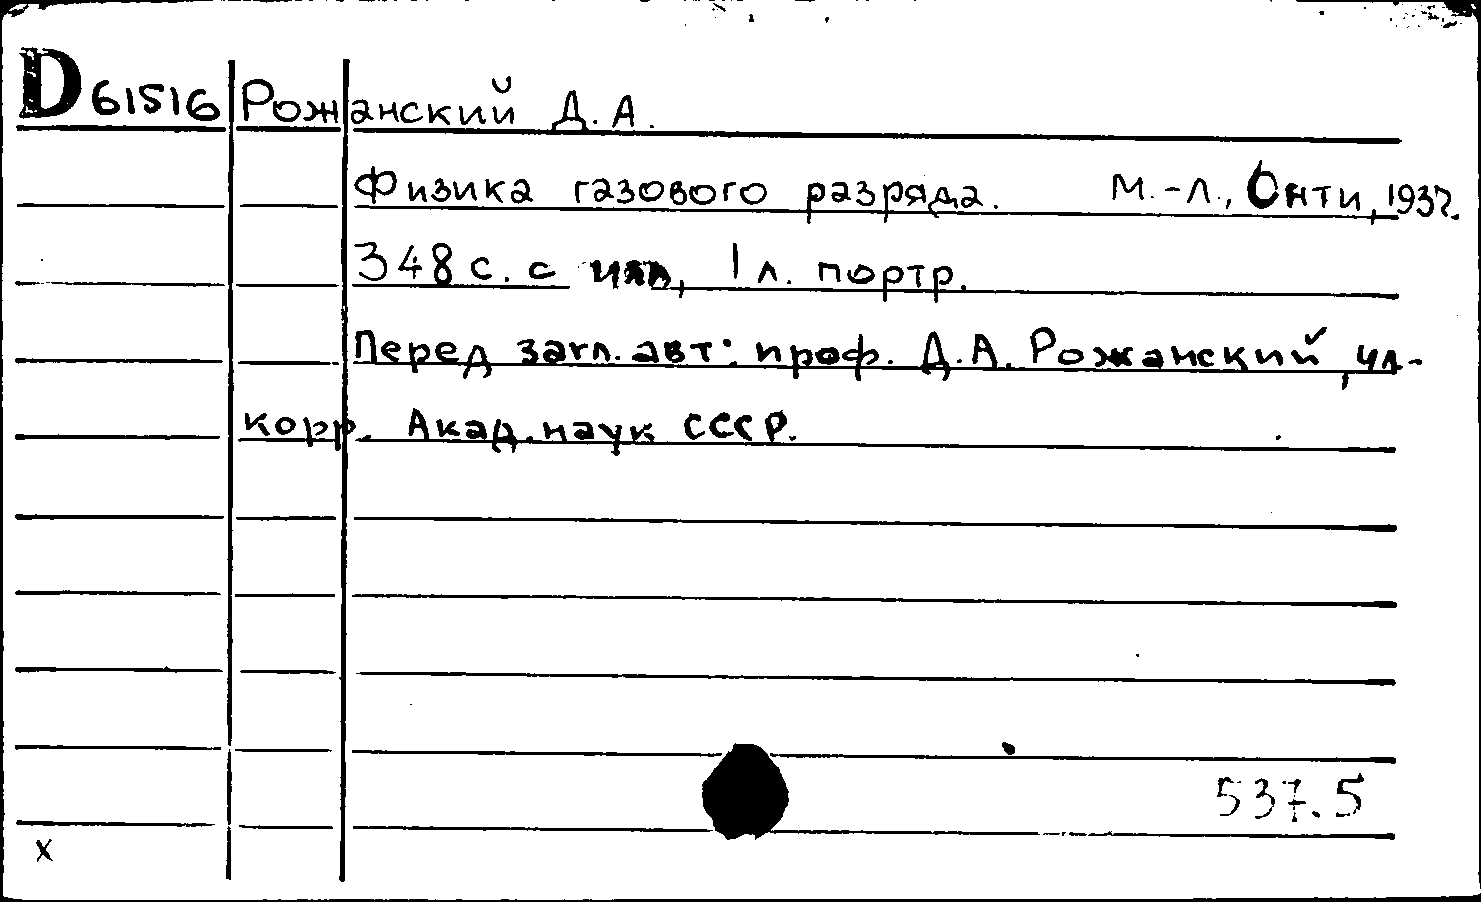 D 61516 Рожанский Д. А.
Физика газового разряда. М.-Л., Онти, 1937.
348 с. с илл, 1 л. портр.
Перед загл. авт: проф. Д. А. Рожанский, чл-
корр. Акад. наук СССР.
537.5
x